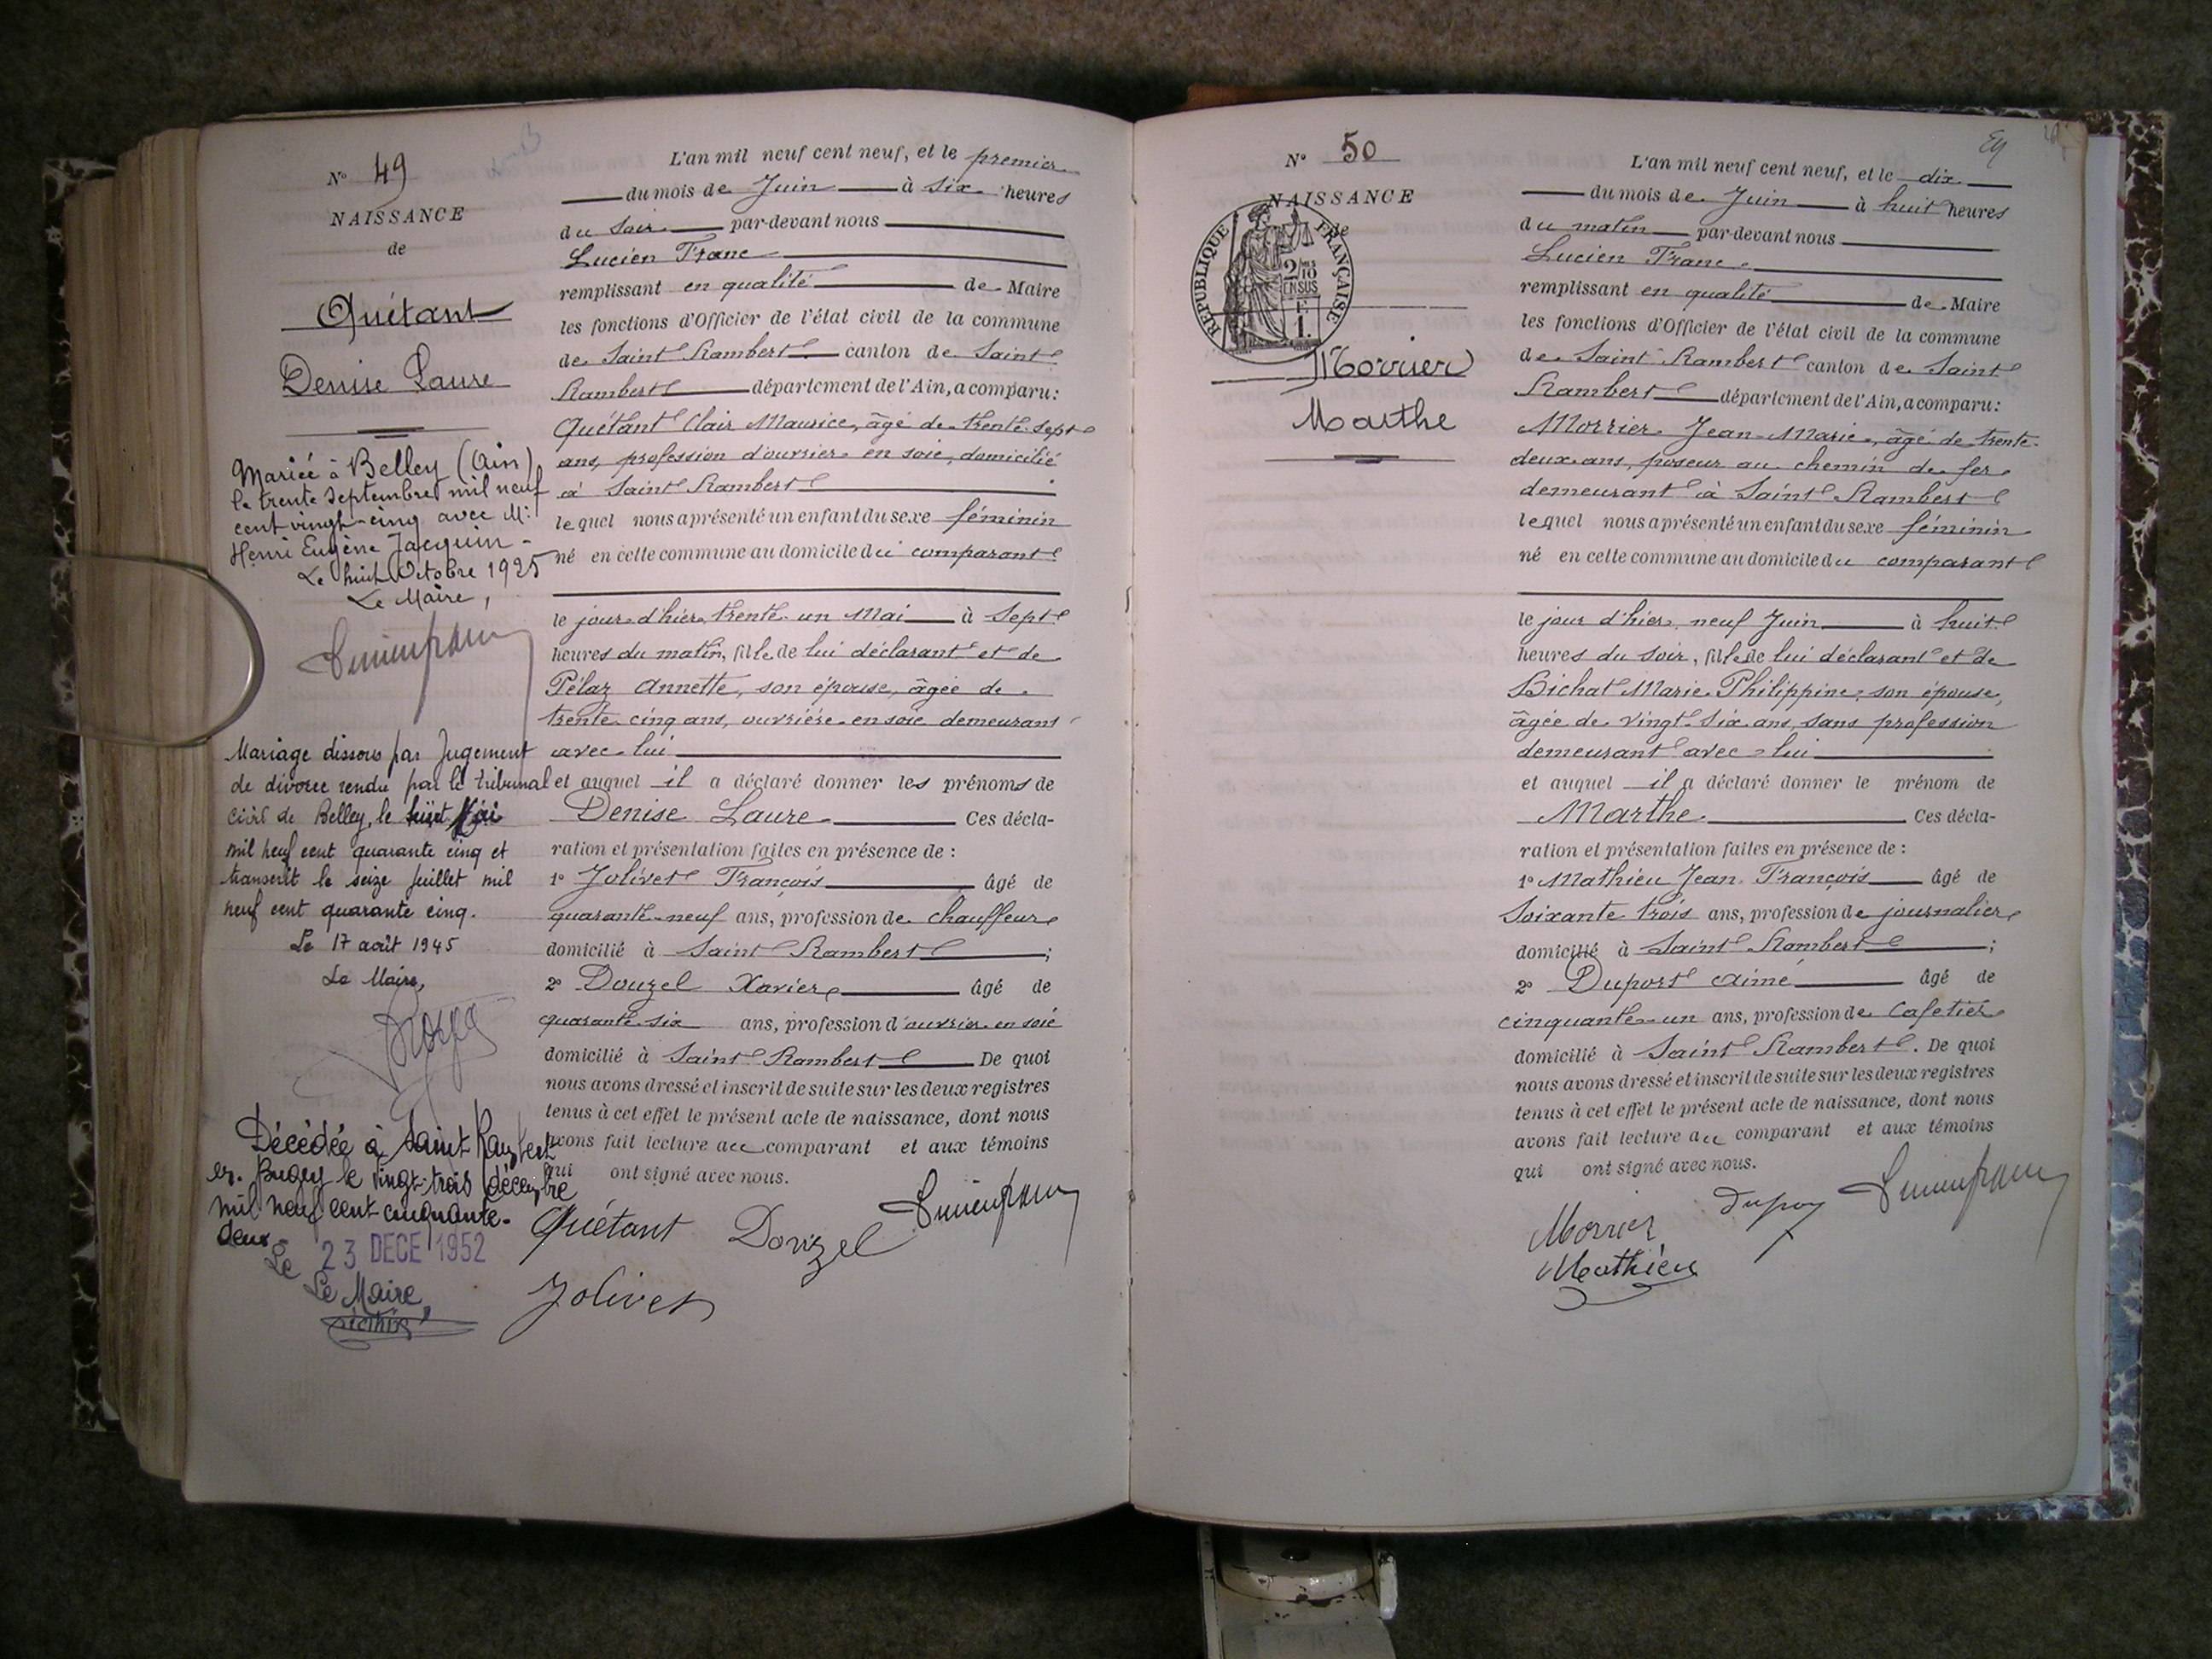 N° 49
NAISSANCE
de
Quétant
Denise Laure
Mariée à Belley (Ain)
le trente Septembre mil neuf
cent vingt-cinq avec Mr
Henri Eugène Jacquin -
Le huit Octobre 1925
Le Maire,
Mariage dissous par Jugement
de divorce rendu par le tribunal
civil de Belley, le huit Mai
mil neuf cent quarante cinq et
transcrit le seize Juillet mil
neuf cent quarante cinq.
Le 17 août 1945
Le Maire,
Décédée à Saint Rambert
en Bugey le vingt-trois décembre
mil neuf cent cinquante-
deux -
Le 23 DECE 1952
Le Maire,
L'an mil neuf cent neuf, et le premier
du mois de Juin à six heures
du soir par-devant nous
Lucien Franc
remplissant en qualité de Maire
les fonctions d'Officier de l'état civil de la commune
de Saint Rambert canton de Saint
Rambert département de l'Ain, a comparu:
Quétant Clair Maurice, âgé de trente-sept
ans, profession d'ouvrier en soie, domicilié
à Saint Rambert
lequel nous a présenté un enfant du sexe féminin
né en cette commune au domicile du comparant
le jour d'hier trente un Mai à Sept
heures du matin, fille de lui déclarant et de
Pélaz Annette, son épouse, âgée de
trente cinq ans, ouvrière en soie demeurant
avec lui
et auquel il a déclaré donner les prénoms de
Denise Laure Ces décla-
ration et présentation faites en présence de :
1° Jolivet François âgé de
quarante-neuf ans, profession de chauffeur
domicilié à Saint Rambert ;
2° Douzel Xavier âgé de
quarante-six ans, profession d'ouvrier en soie
domicilié à Saint Rambert De quoi
nous avons dressé et inscrit de suite sur les deux registres
tenus à cet effet le présent acte de naissance, dont nous
avons fait lecture au comparant et aux témoins
qui ont signé avec nous.
Quétant Douzel Lucien Franc
Jolivet
N° 50
NAISSANCE
de
REPUBLIQUE FRANÇAISE
2/10 EN SUS
F. 1.
Morrier
Marthe
L'an mil neuf cent neuf, et le dix
du mois de Juin à huit heures
du matin par-devant nous
Lucien Franc
remplissant en qualité de Maire
les fonctions d'Officier de l'état civil de la commune
de Saint Rambert canton de Saint
Rambert département de l'Ain, a comparu:
Morrier Jean-Marie, âgé de trente-
deux ans, poseur au chemin de fer
demeurant à Saint Rambert
lequel nous a présenté un enfant du sexe féminin
né en cette commune au domicile du comparant
le jour d'hier neuf Juin à huit
heures du soir, fille de lui déclarant et de
Bichat Marie Philippine, son épouse,
âgée de vingt-six ans, sans profession
demeurant avec lui
et auquel il a déclaré donner le prénom de
Marthe Ces décla-
ration et présentation faites en présence de :
1° Mathieu Jean François âgé de
Soixante trois ans, profession de journalier
domicilié à Saint Rambert ;
2° Duport Aimé âgé de
cinquante-un ans, profession de Cafetier
domicilié à Saint Rambert. De quoi
nous avons dressé et inscrit de suite sur les deux registres
tenus à cet effet le présent acte de naissance, dont nous
avons fait lecture au comparant et aux témoins
qui ont signé avec nous.
Morrier Lucien Franc
Mathieu